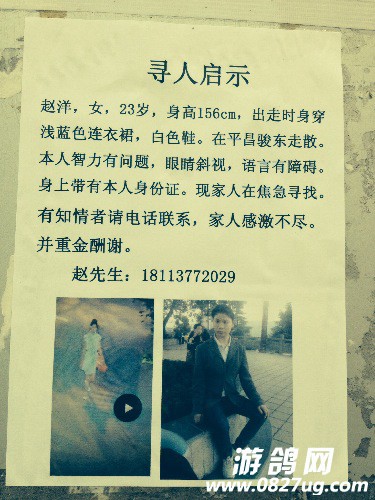 寻人启示
赵洋，女，23岁，身高156cm，出走时身穿
浅蓝色连衣裙，白色鞋。在平昌骏东走散。
本人智力有问题，眼睛斜视，语言有障碍。
身上带有本人身份证。现家人在焦急寻找。
有知情者请电话联系，家人感激不尽。
并重金酬谢。
赵先生：18113772029
游鸽网
www.0827ug.com